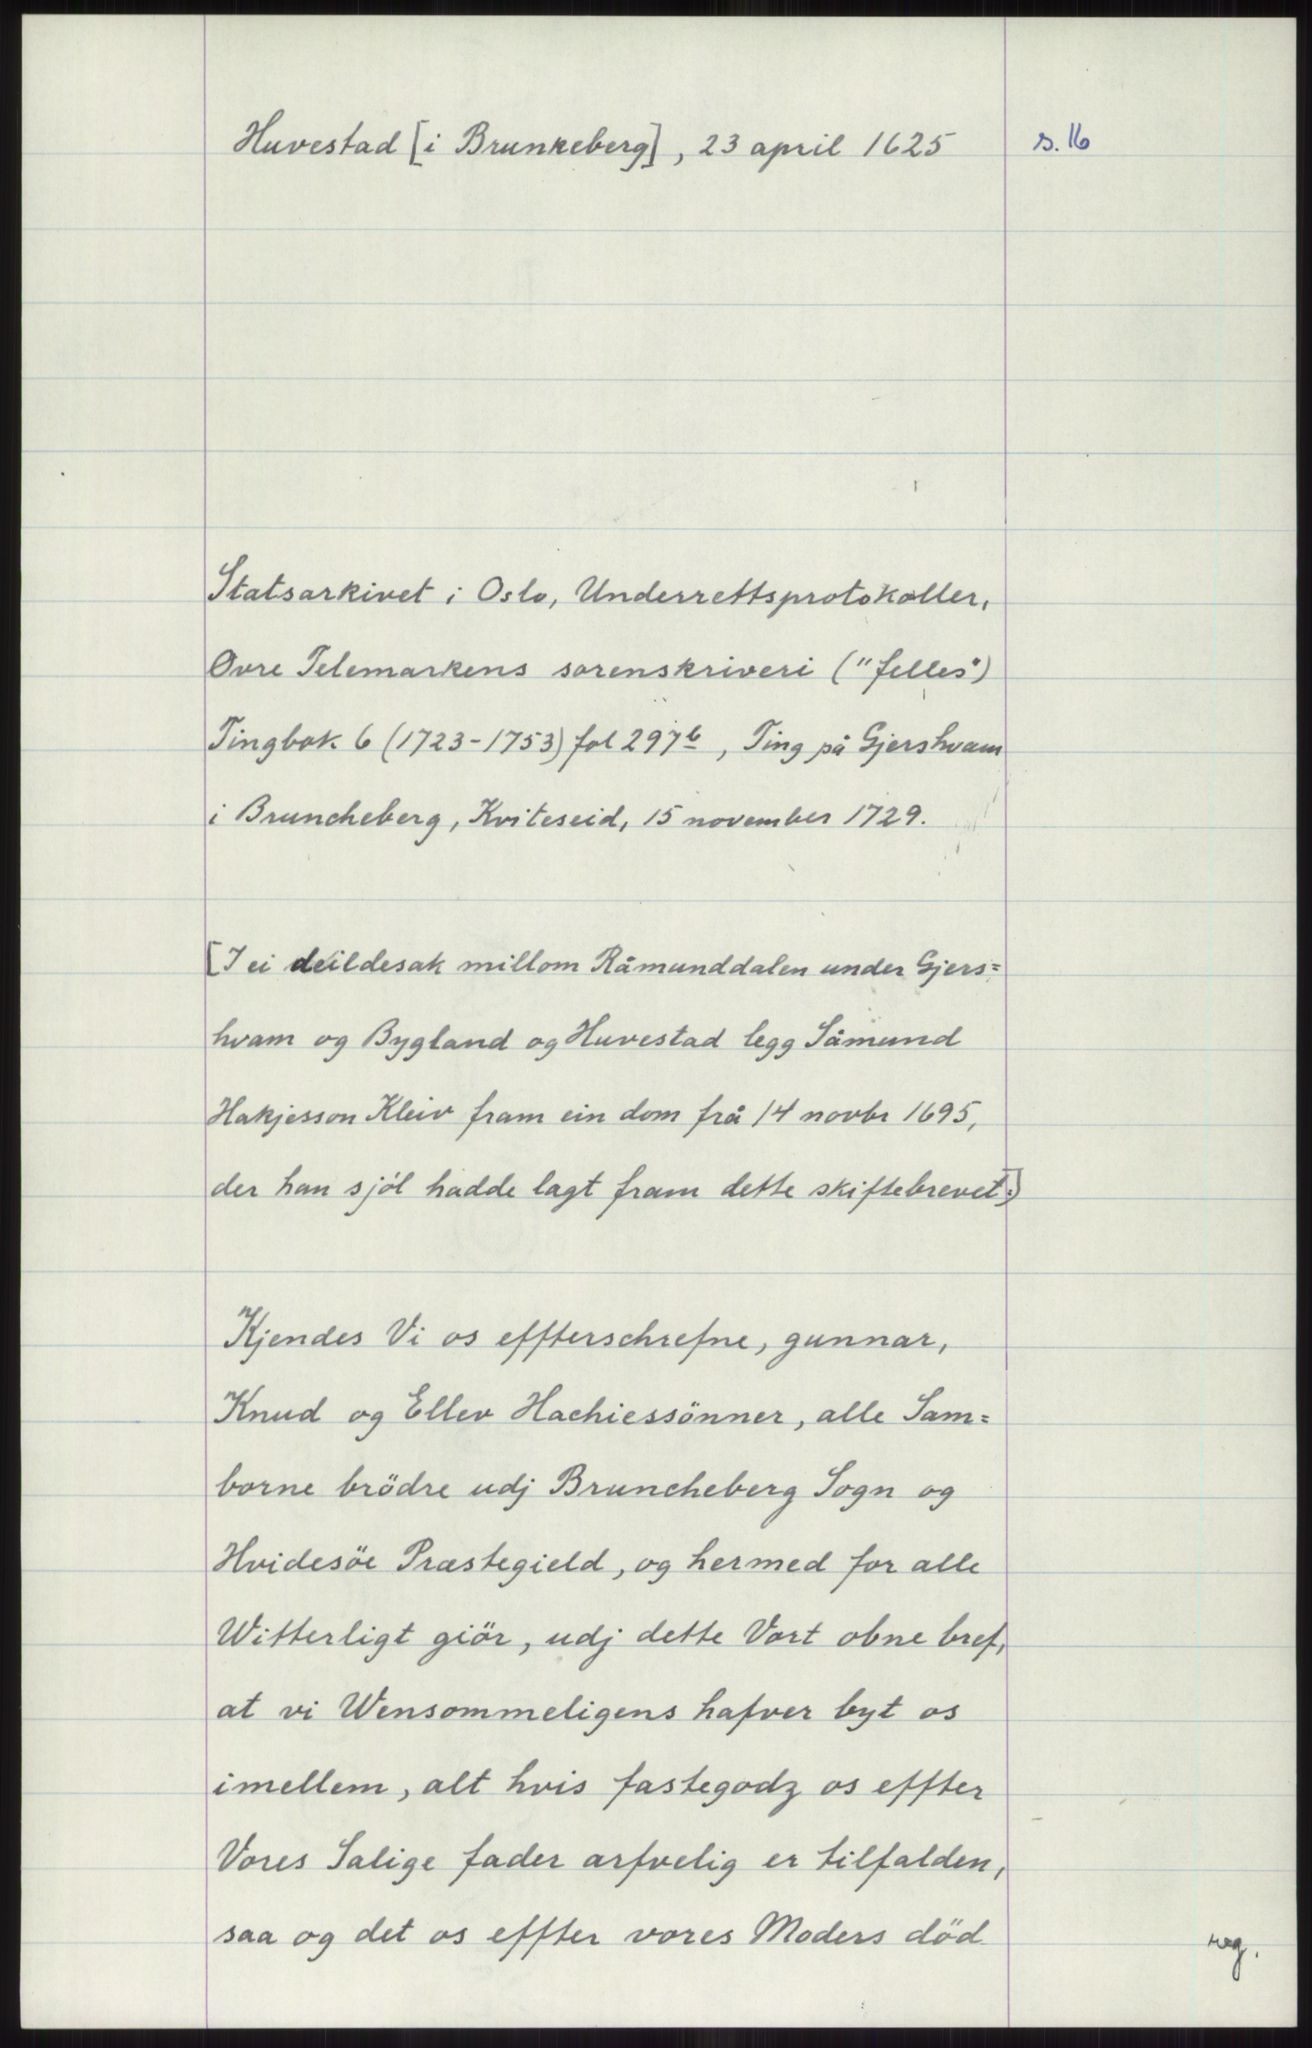 Huvestad [i Brunkeberg], 23 april 1625
s. 16
Statsarkivet i Oslo, Underrettsprotokoller,
Øvre Telemarkens sorenskriveri ("felles")
Tingbok 6 (1723-1753) fol 297b, Ting på Gjershvam
i Bruncheberg, Kviteseid, 15 november 1729.
[I ei deildesak millom Råmunddalen under Gjers=
hvam og Bygland og Huvestad legg Såmund
Hakjesson Kleiv fram ein dom frå 14 novbr 1695,
der han sjöl hadde lagt fram dette skiftebrevet.]
Kjendes Vi os effterschrefne, gunnar,
Knud og Ellev Hachiessönner, alle Sam=
borne brödre udj Bruncheberg Sogn og
Hvidesöe Præstegield, og hermed for alle
Witterligt giör, udj dette Vort obne bref,
at vi Wensommeligens hafver byt os
imellem, alt hvis fastegodz os effter
Vores Salige fader arfvelig er tilfalden,
saa og det os effter vores Moders död
reg.